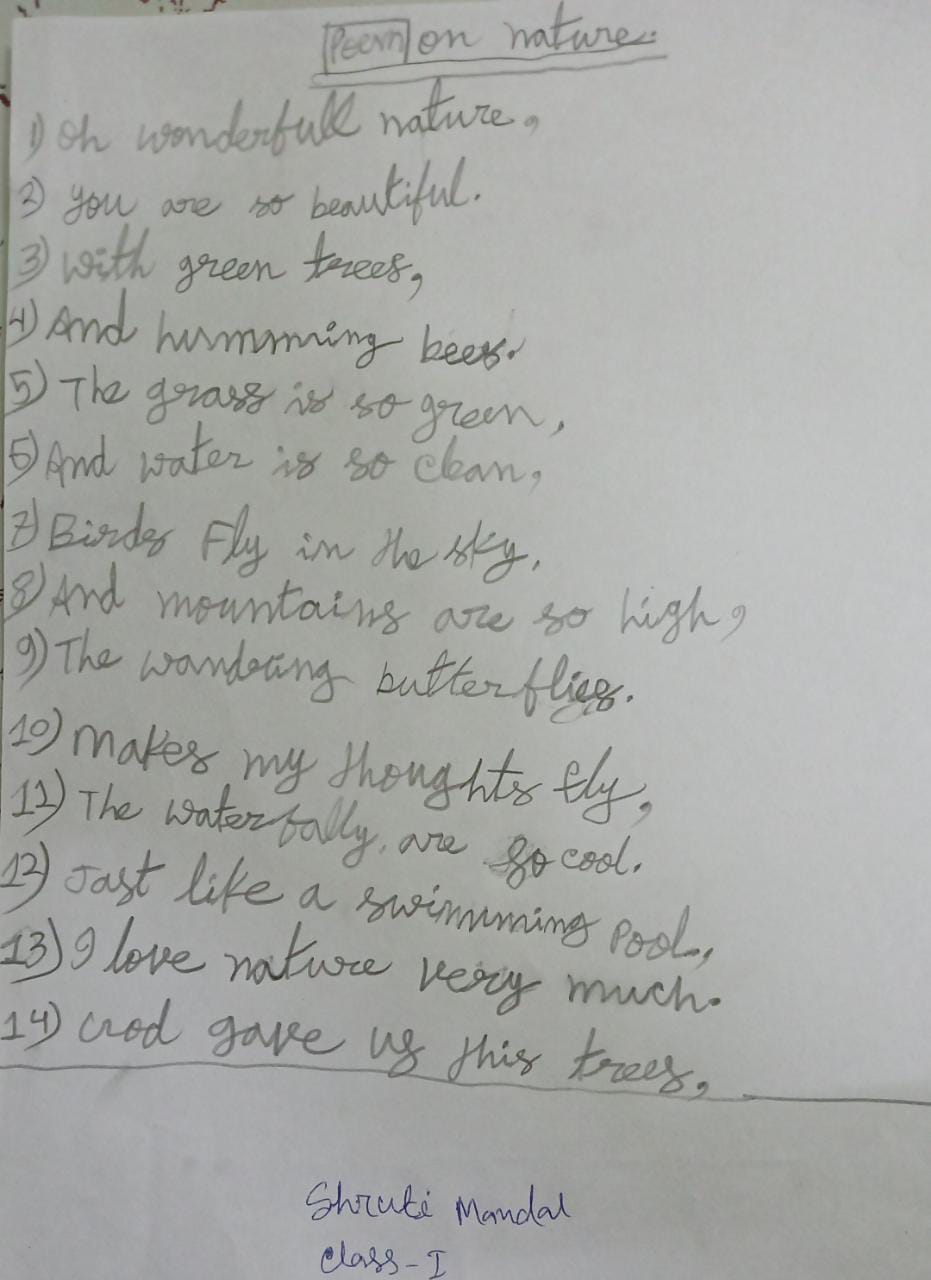 Poem on nature.
1) Oh wonderfull nature,
2) You are so beautiful.
3) With green trees,
4) And humming bees.
5) The grass is so green,
6) And water is so clean,
7) Birds Fly in the sky.
8) And mountains are so high,
9) The wandering butterflies.
10) Makes my thoughts fly,
11) The waterfally, are so cool.
12) Jast like a swimming Pool,
13) I love nature very much.
14) God gave us this trees,
Shruti Mandal
Class-I